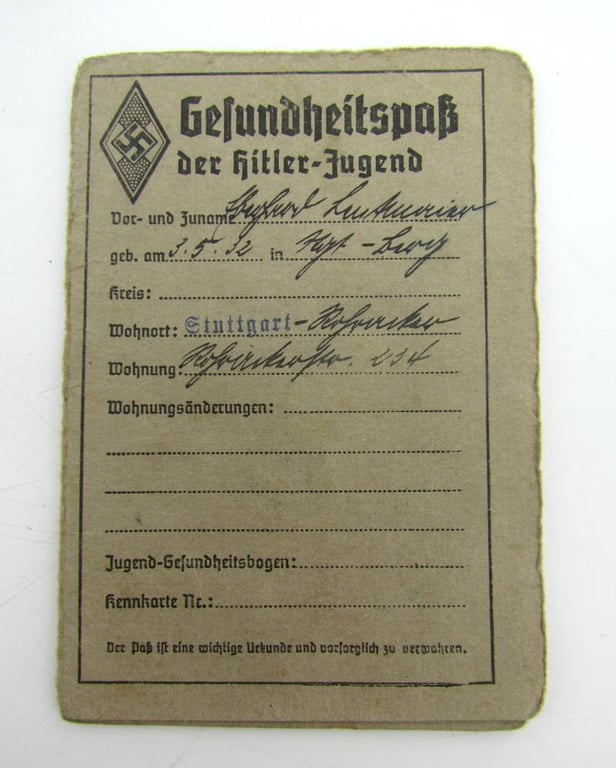 Gesundheitspaß
der Hitler-Jugend
Vor- und Zuname Eberhard
geb. am 3.5.32 in Stgt-Berg
Kreis:
Wohnort: Stuttgart-Rohracker
Wohnung: Rohrackerstr. 234
Wohnungsänderungen:
Jugend-Gesundheitsbogen:
Kennkarte Nr.:
Der Paß ist eine wichtige Urkunde und vorsorglich zu verwahren.